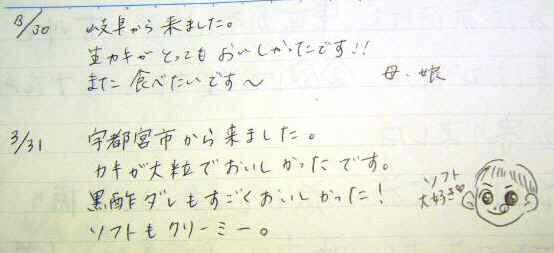 3/30 岐阜から来ました。
生カキがとってもおいしかったです!!
また食べたいです〜
母・娘
3/31 宇都宮市から来ました。
カキが大粒でおいしかったです。
黒酢ダレもすごくおいしかった!
ソフトもクリーミー。
ソフト
大好き♥